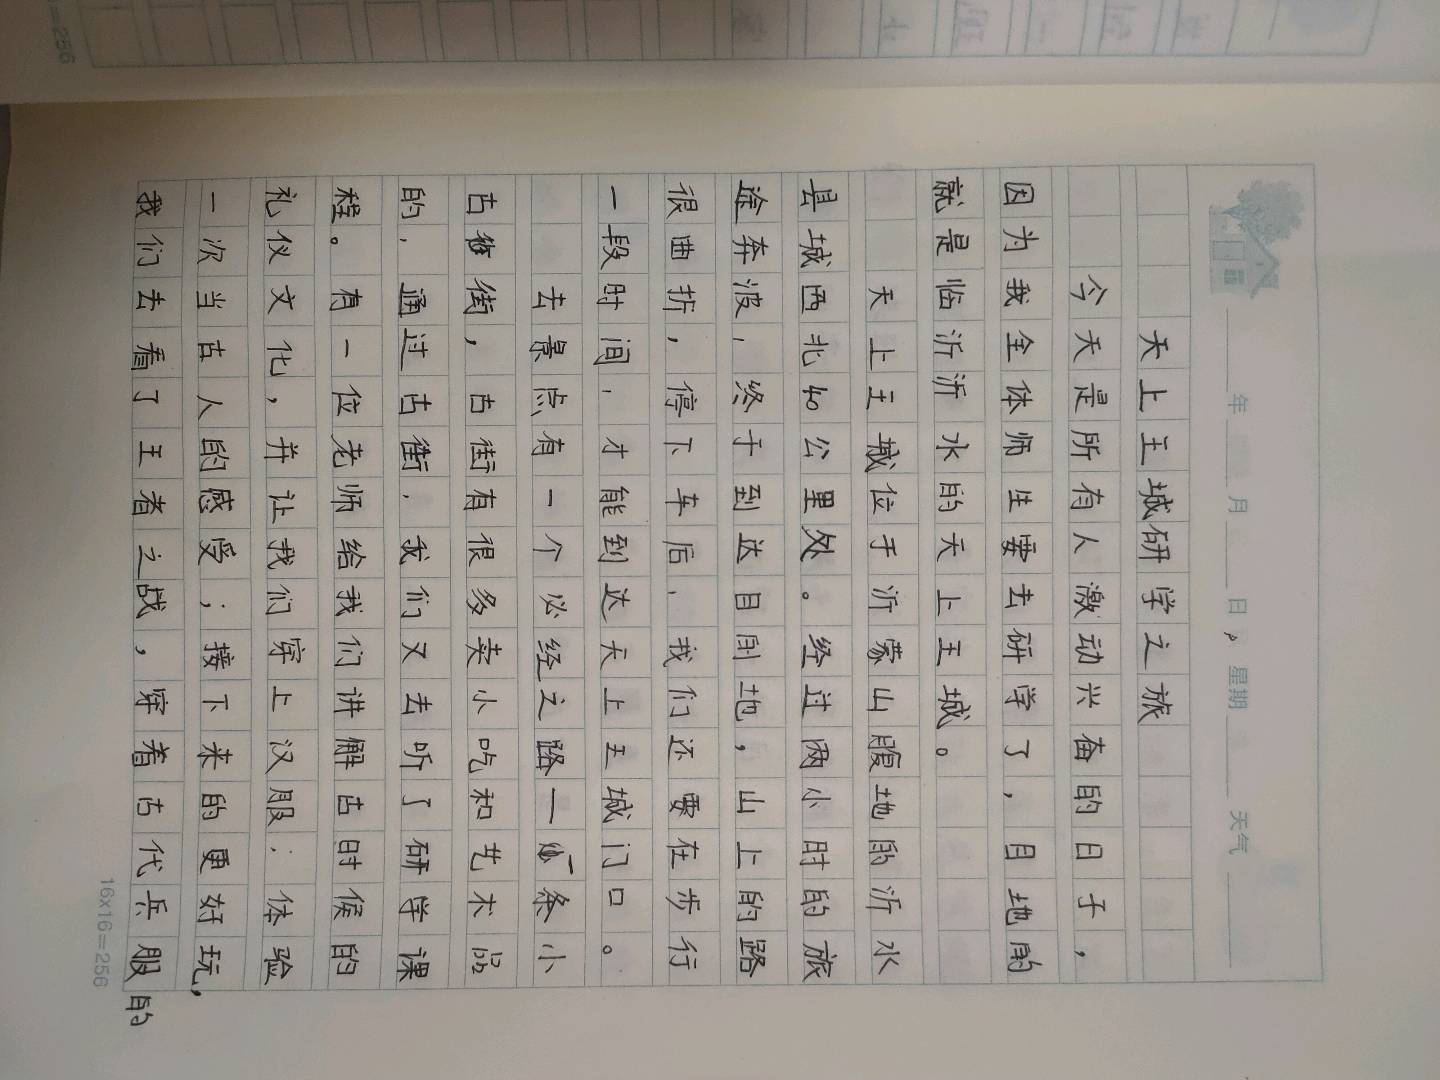 年 月 日 星期 天气
天上王城研学之旅
今天是所有人激动兴奋的日子，
因为我全体师生要去研学了，目地的
就是临沂沂水的天上王城。
天上王城位于沂蒙山腹地的沂水
县城西北40公里处。经过两小时的旅
途奔波，终于到达目的地，山上的路
很曲折，停下车后，我们还要在步行
一段时间，才能到达天上王城门口。
去景点有一个必经之路——一条小
古街，古街有很多卖小吃和艺术品
的，通过古街，我们又去听了研学课
程。有一位老师给我们讲解古时候的
礼仪文化，并让我们穿上汉服；体验
一次当古人的感受；接下来的更好玩，
我们去看了王者之战，穿着古代兵服的
16×16=256
=256